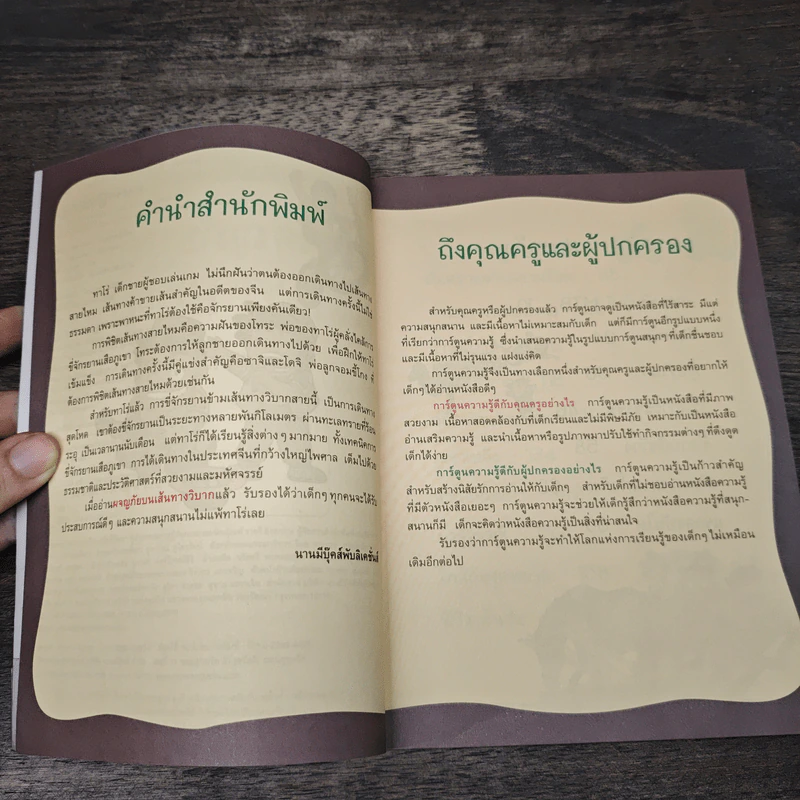 คำนำสำนักพิมพ์
ทาโร่ เด็กชายผู้ชอบเล่นเกม ไม่นึกฝันว่าตนต้องออกเดินทางไปเส้นทาง
สายไหม เส้นทางค้าขายเส้นสำคัญในอดีตของจีน แต่การเดินทางครั้งนี้ไม่ใช่
ธรรมดา เพราะพาหนะที่ทาโร่ต้องใช้คือจักรยานเพียงคันเดียว!
การพิชิตเส้นทางสายไหมคือความฝันของโทระ พ่อของทาโร่ผู้คลั่งไคล้การ
ขี่จักรยานเสือภูเขา โทระต้องการให้ลูกชายออกเดินทางไปด้วย เพื่อฝึกให้ทาโร่
เข้มแข็ง การเดินทางครั้งนี้มีคู่แข่งสำคัญคือซาจิและโดจิ พ่อลูกจอมขี้โกง
ต้องการพิชิตเส้นทางสายไหมด้วยเช่นกัน
สำหรับทาโร่แล้ว การขี่จักรยานข้ามเส้นทางวิบากสายนี้ เป็นการเดินทาง
สุดโหด เขาต้องขี่จักรยานเป็นระยะทางหลายพันกิโลเมตร ผ่านทะเลทรายที่ร้อน
ระอุ เป็นเวลานานนับเดือน แต่ทาโร่ก็ได้เรียนรู้สิ่งต่างๆ มากมาย ทั้งเทคนิคการ
ขี่จักรยานเสือภูเขา การได้เดินทางในประเทศจีนที่กว้างใหญ่ไพศาล เต็มไปด้วย
ธรรมชาติและประวัติศาสตร์ที่สวยงามและมหัศจรรย์
เมื่ออ่านผจญภัยบนเส้นทางวิบากแล้ว รับรองได้ว่าเด็กๆ ทุกคนจะได้รับ
ประสบการณ์ดีๆ และความสนุกสนานไม่แพ้ทาโร่เลย
นานมีบุ๊คส์พับลิเคชั่นส์
ถึงคุณครูและผู้ปกครอง
สำหรับคุณครูหรือผู้ปกครองแล้ว การ์ตูนอาจดูเป็นหนังสือที่ไร้สาระ มีแต่
ความสนุกสนาน และมีเนื้อหาไม่เหมาะสมกับเด็ก แต่ก็มีการ์ตูนอีกรูปแบบหนึ่ง
ที่เรียกว่าการ์ตูนความรู้ ซึ่งนำเสนอความรู้ในรูปแบบการ์ตูนสนุกๆ ที่เด็กชื่นชอบ
และมีเนื้อหาที่ไม่รุนแรง แฝงแง่คิด
การ์ตูนความรู้จึงเป็นทางเลือกหนึ่งสำหรับคุณครูและผู้ปกครองที่อยากให้
เด็กๆ ได้อ่านหนังสือดีๆ
การ์ตูนความรู้ดีกับคุณครูอย่างไร การ์ตูนความรู้เป็นหนังสือที่มีภาพ
สวยงาม เนื้อหาสอดคล้องกับที่เด็กเรียนและไม่มีพิษมีภัย เหมาะกับเป็นหนังสือ
อ่านเสริมความรู้ และนำเนื้อหาหรือรูปภาพมาปรับใช้ทำกิจกรรมต่างๆ ที่ดึงดูด
เด็กได้ง่าย
การ์ตูนความรู้ดีกับผู้ปกครองอย่างไร การ์ตูนความรู้เป็นก้าวสำคัญ
สำหรับสร้างนิสัยรักการอ่านให้กับเด็กๆ สำหรับเด็กที่ไม่ชอบอ่านหนังสือความรู้
ที่มีตัวหนังสือเยอะๆ การ์ตูนความรู้จะช่วยให้เด็กรู้สึกว่าหนังสือความรู้ที่สนุก-
สนานก็มี เด็กจะคิดว่าหนังสือความรู้เป็นสิ่งที่น่าสนใจ
รับรองว่าการ์ตูนความรู้จะทำให้โลกแห่งการเรียนรู้ของเด็กๆ ไม่เหมือน
เดิมอีกต่อไป